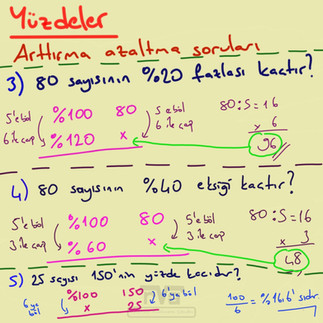 Yüzdeler
Arttırma azaltma soruları
3) 80 sayısının %20 fazlası kaçtır?
5'e böl %100 80 5 e böl 80:5=16
6 ile çarp %120 x 6 ile çarp x 6
96
4) 80 sayısının %40 eksiği kaçtır?
5'e böl %100 80 5'e böl 80:5=16
3 ile çarp %60 x 3 ile çarp x 3
48
5) 25 sayısı 150'nin yüzde kaçıdır?
6'ya böl %100 150 6'ya böl
x 25
100/6 = %16.6' sıdır.